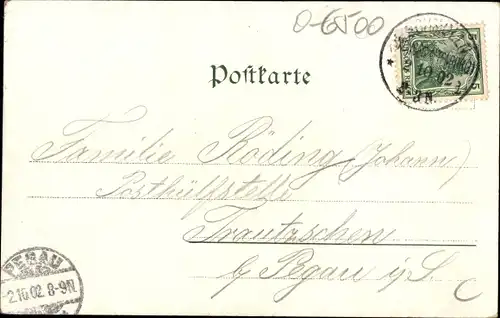 O-6500
Postkarte
10 02
Familie Röding (Johann)
Posthülfstelle
Trautzschen
b/ Pegau i/S.
PEGAU
2.10.02 8-9N.